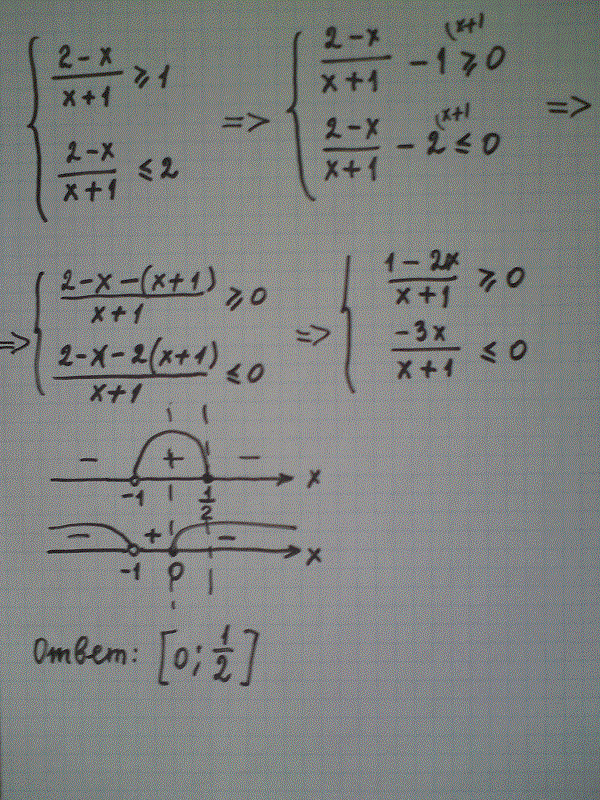 { (2-x)/(x+1) ≥ 1 => { (2-x)/(x+1) - 1^(x+1 ≥ 0 =>
{ (2-x)/(x+1) ≤ 2 { (2-x)/(x+1) - 2^(x+1 ≤ 0
=> { (2-x-(x+1))/(x+1) ≥ 0 => { (1-2x)/(x+1) ≥ 0
{ (2-x-2(x+1))/(x+1) ≤ 0 { (-3x)/(x+1) ≤ 0
- + - x
-1 1/2
- + - x
-1 0
Ответ: [0; 1/2]